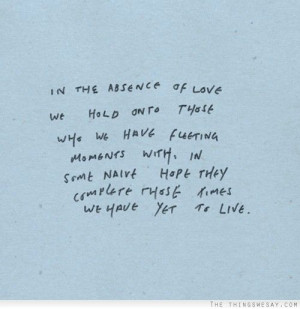 IN THE ABSENCE OF LOVE
WE HOLD ONTO THOSE
WHO WE HAVE FLEETING
MOMENTS WITH, IN
SOME NAIVE HOPE THEY
COMPLETE THOSE TIMES
WE HAVE YET TO LIVE.
THE THINGSWESAY.COM